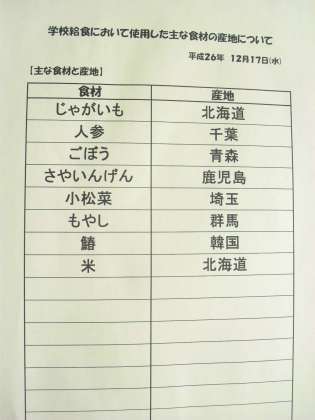 学校給食において使用した主な食材の産地について
平成26年 12月17日(水)
【主な食材と産地】
食材 産地
じゃがいも 北海道
人参 千葉
ごぼう 青森
さやいんげん 鹿児島
小松菜 埼玉
もやし 群馬
鰆 韓国
米 北海道